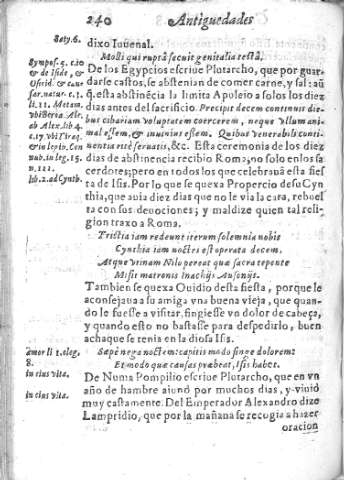 240 Antiguedades
Saty.6.
dixo Iuuenal.
Molli qui ruptâ secuit genitalia testâ.
Sympos.q. c.10
& de Iside, &
sar.natur.c.1.
li.11. Metam.
ab Alex lib.4
nub.in leg.15.
n.111.
lib.2.ad Cynth.
De los Egypcios escriue Plutarcho, que por guar-
darse castos, se abstenian de comer carne, y sal: aũ
q̃ esta abstinẽcia la limita Apuleio a solos los diez
dias antes del sacrificio. Precipit decem continuis die-
bus cibariam voluptatem coercerem, neque vllum ani-
mal essem, & inuinius essem. Quibus venerabili conti-
nentia ritè seruatis, &c. Esta ceremonia de los diez
dias de abstinencia recibio Roma; no solo en los sa
cerdotes; pero en todos los que celebrauã esta fies
ta de Isis. Por lo que se quexa Propercio de su Cyn
thia, que auia diez dias que no le via la cara, rebuel
ta con sus deuociones; y maldize quien tal reli-
gion traxo a Roma.
Tristia iam redeunt iterum solemnia nobis
Cynthia iam noctes est operata decem.
Atque vtinam Nilo pereat quæ sacra tepente
Misit matronis Inachijs Ausonijs.
Tambien se quexa Ouidio desta fiesta, porque le
aconsejaua a su amiga vna buena vieja, que quan-
do le fuesse a visitar, fingiesse vn dolor de cabeça,
y quando esto no bastasse para despedirlo, buen
achaque se tenia en la diosa Isis.
amor li 1.eleg.
8.
Sapè nega noctem: capitis modo finge dolorem:
Et modo quæ causas præbeat, Isis habet.
in eius vita.
in eius vita.
De Numa Pompilio escriue Plutarcho, que en vn
año de hambre aiunò por muchos dias, y viuiò
muy castamente. Del Emperador Alexandro dize
Lampridio, que por la mañana se recogia a hazer
oracion